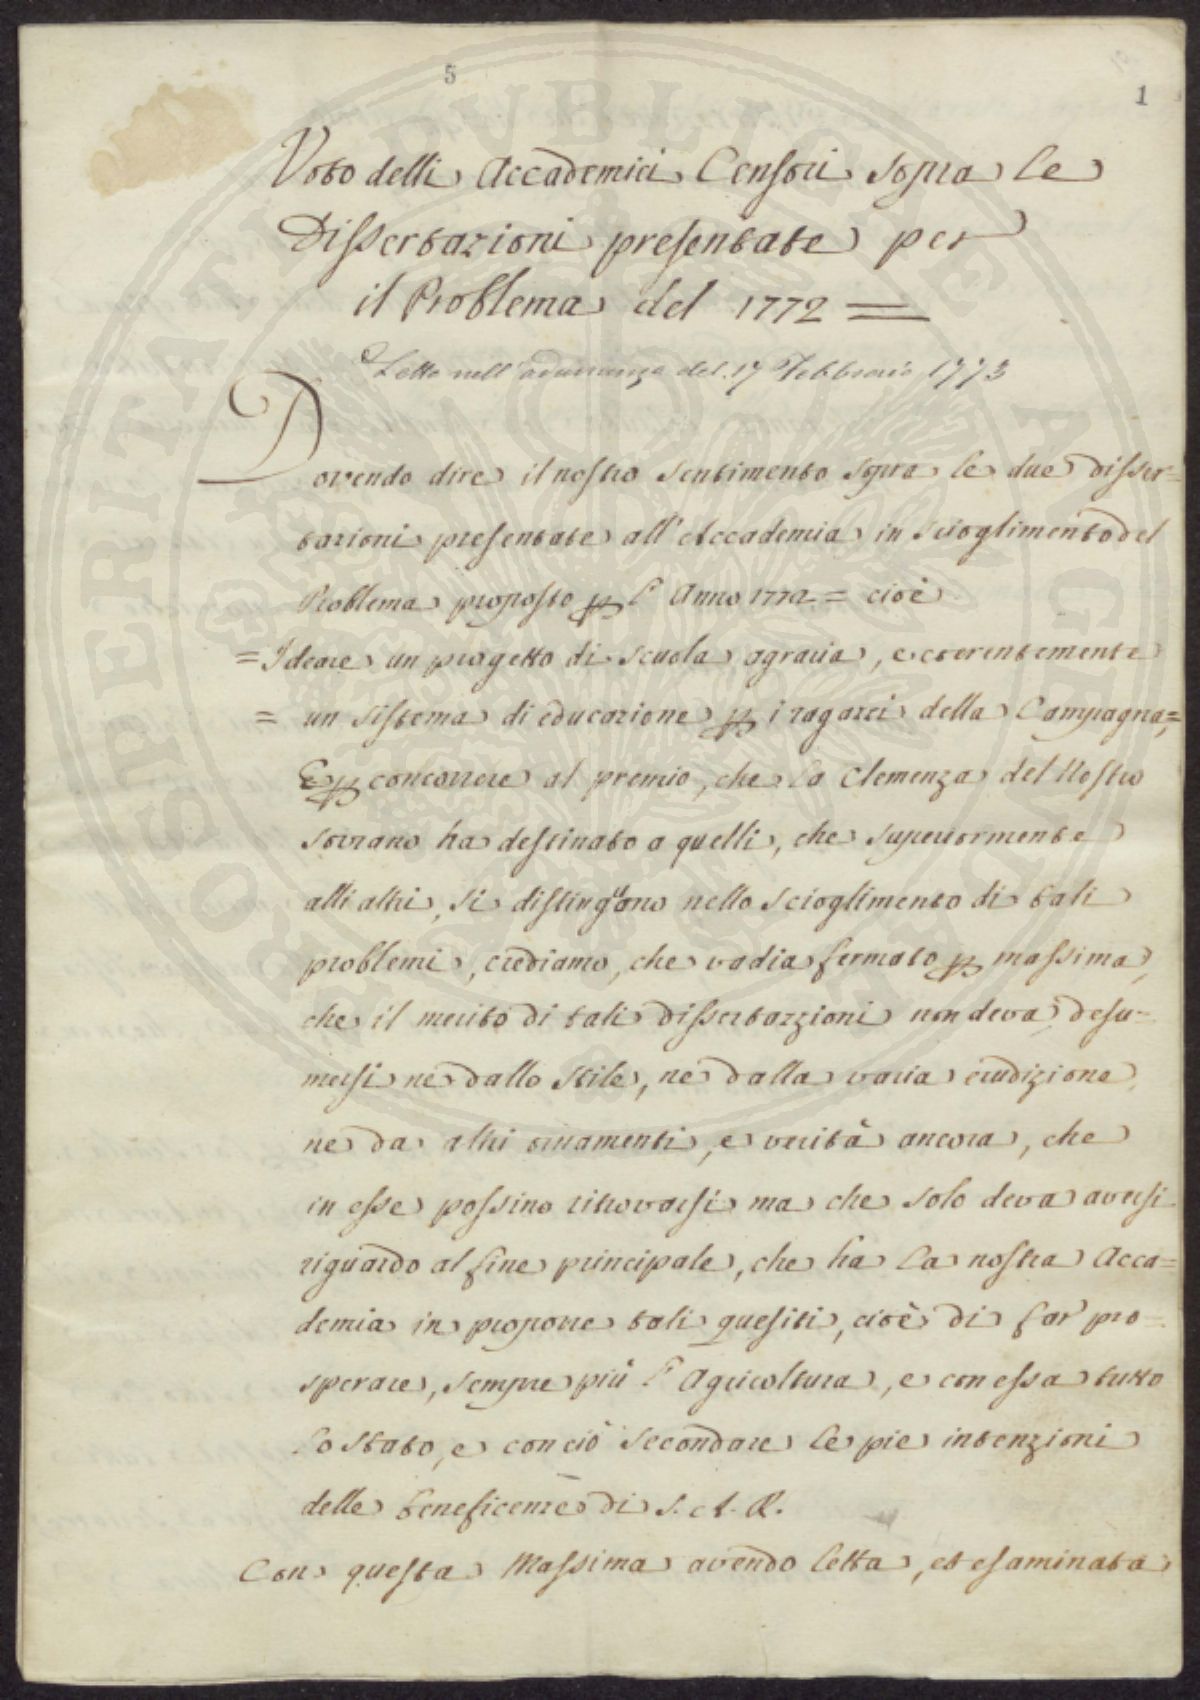 5
1
Voto delli Accademici Censori sopra le
Dissertazioni presentate per
il Problema del 1772 =
Letto nell'adunanza del 17 Febbraio 1773
Dovendo dire il nostro sentimento sopra le due disser=
tazioni presentate all'Accademia in scioglimento del
Problema proposto p l'Anno 1772 = cioè
= Ideare un progetto di scuola agraria, e coerentemente
= un sistema di educazione p i ragazzi della Campagna, =
E p concorrere al premio, che la Clemenza del Nostro
sovrano ha destinato a quelli, che superiormente
alli altri, si distinguono nello scioglimento di tali
problemi, crediamo, che vadia fermato p massima,
che il merito di tali dissertazzioni non deva desu=
mersi ne dallo stile, ne dalla varia erudizione
ne da altri ornamenti, e verità ancora, che
in esse possino ritrovarsi ma che solo deva aversi
riguardo al fine principale, che ha la nostra Acca=
demia in proporre tali quesiti, cioè di far pro=
sperare, sempre più l'Agricoltura, e con essa tutto
lo stato, e con ciò secondare le pie intenzioni
delle beneficenze di S. A. R.
Con questa Massima avendo letta, et esaminata
PROSPERITATI PUBLICAE AUGENDAE